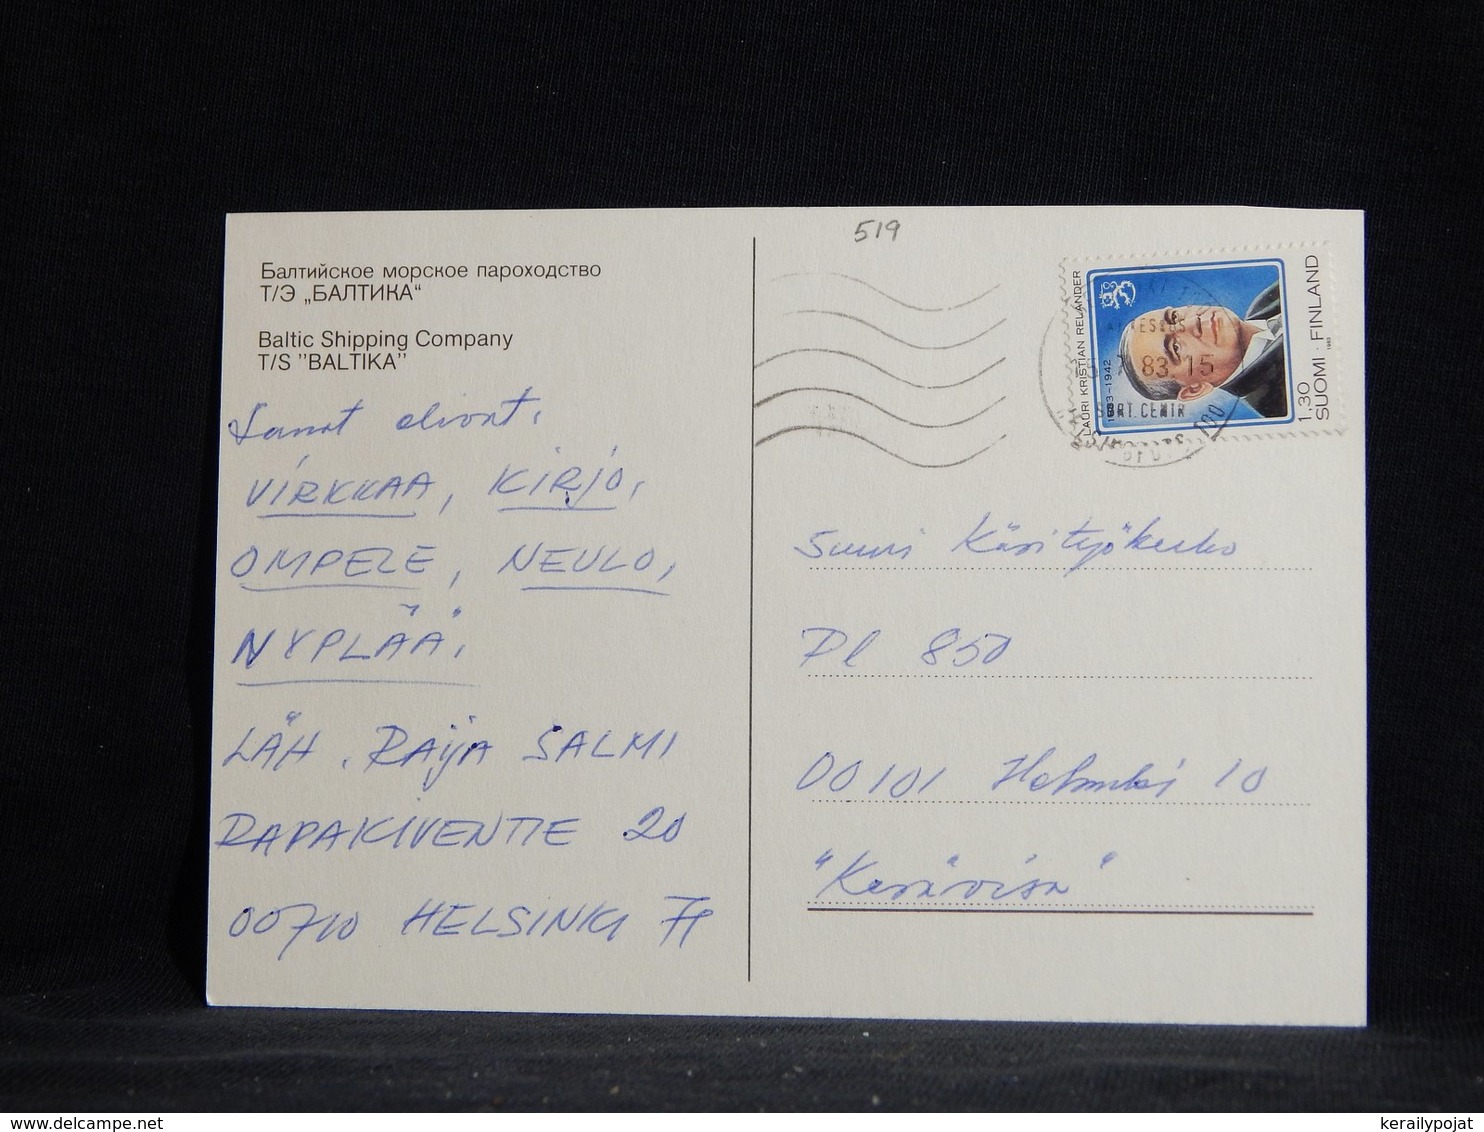 519
Балтийское морское пароходство
Т/Э „БАЛТИКА“
Baltic Shipping Company
T/S "BALTIKA"
Sanat olivat:
VIRKKAA, KIRJO,
OMPELE, NEULO,
NYPLÄÄ.
LÄH. RAIJA SALMI
RAPAKIVENTIE 20
00710 HELSINKI 71
LAURI KRISTIAN RELANDER
1883-1942
1,30
SUOMI · FINLAND
1983
83.15
SORT.CENTR
Suuri Käsityökerho
PL 850
00101 Helsinki 10
"Kesävisa"
kerailypojat